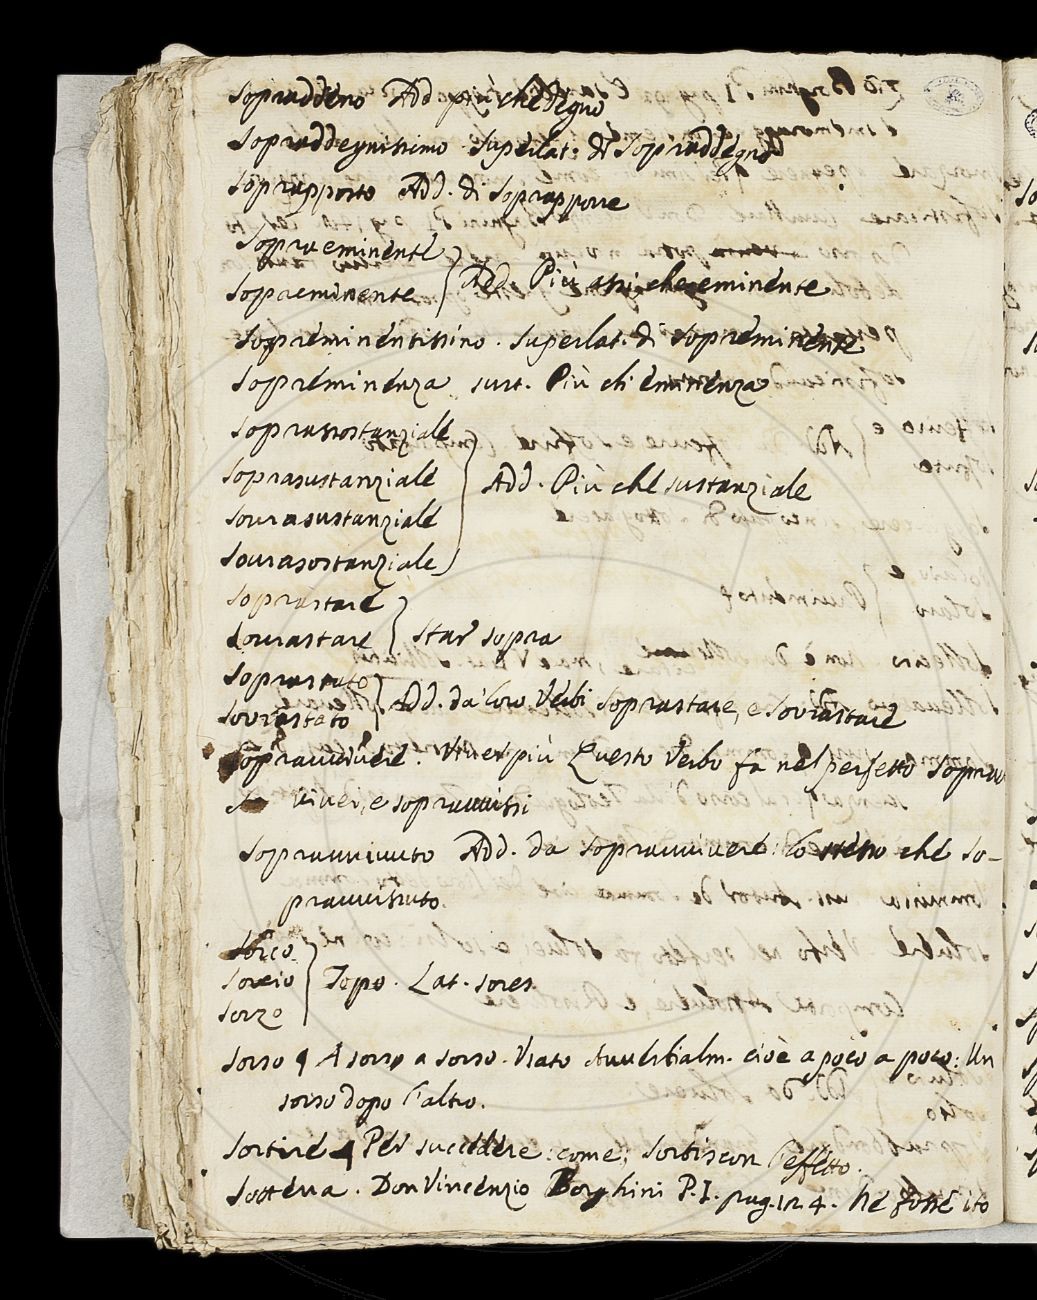 Sopraddeno Add. più che degno
Sopraddegnissimo. Superlat. di Sopraddegno
Soprapposto Add. di Soprapporre
Sopraeminente
Sopreminente } Add. Più che eminente
Sopreminentissimo. Superlat. di Sopreminente
Sopreminenza sust. Più ch'eminenza
Soprasostanziale
Soprasustanziale
Sovrasustanziale
Sovrasostanziale } Add. Più che sustanziale
Soprastare
Sovrastare } star sopra
Soprastato
Sovrastato } Add. da' loro Verbi Soprastare, e Sovrastare
Sopravvivere. Viver più Questo Verbo fa nel perfetto Soprav
vivei, e sopravvissi
Sopravvivuto Add. da Sopravvivere: lo stesso che So-
pravvissuto.
Sorco
Sorcio
Sorzo } Topo. Lat. sorex
Sorso ¶ A sorso a sorso. Usato Avverbialm. cioè a poco a poco: Un
sorso dopo l'altro.
Sortire ¶ Per succedere: come; Sortiscon l'effetto.
Sotterra. Don Vincenzio Borghini P. I. pag. 124. Ne fosse ito